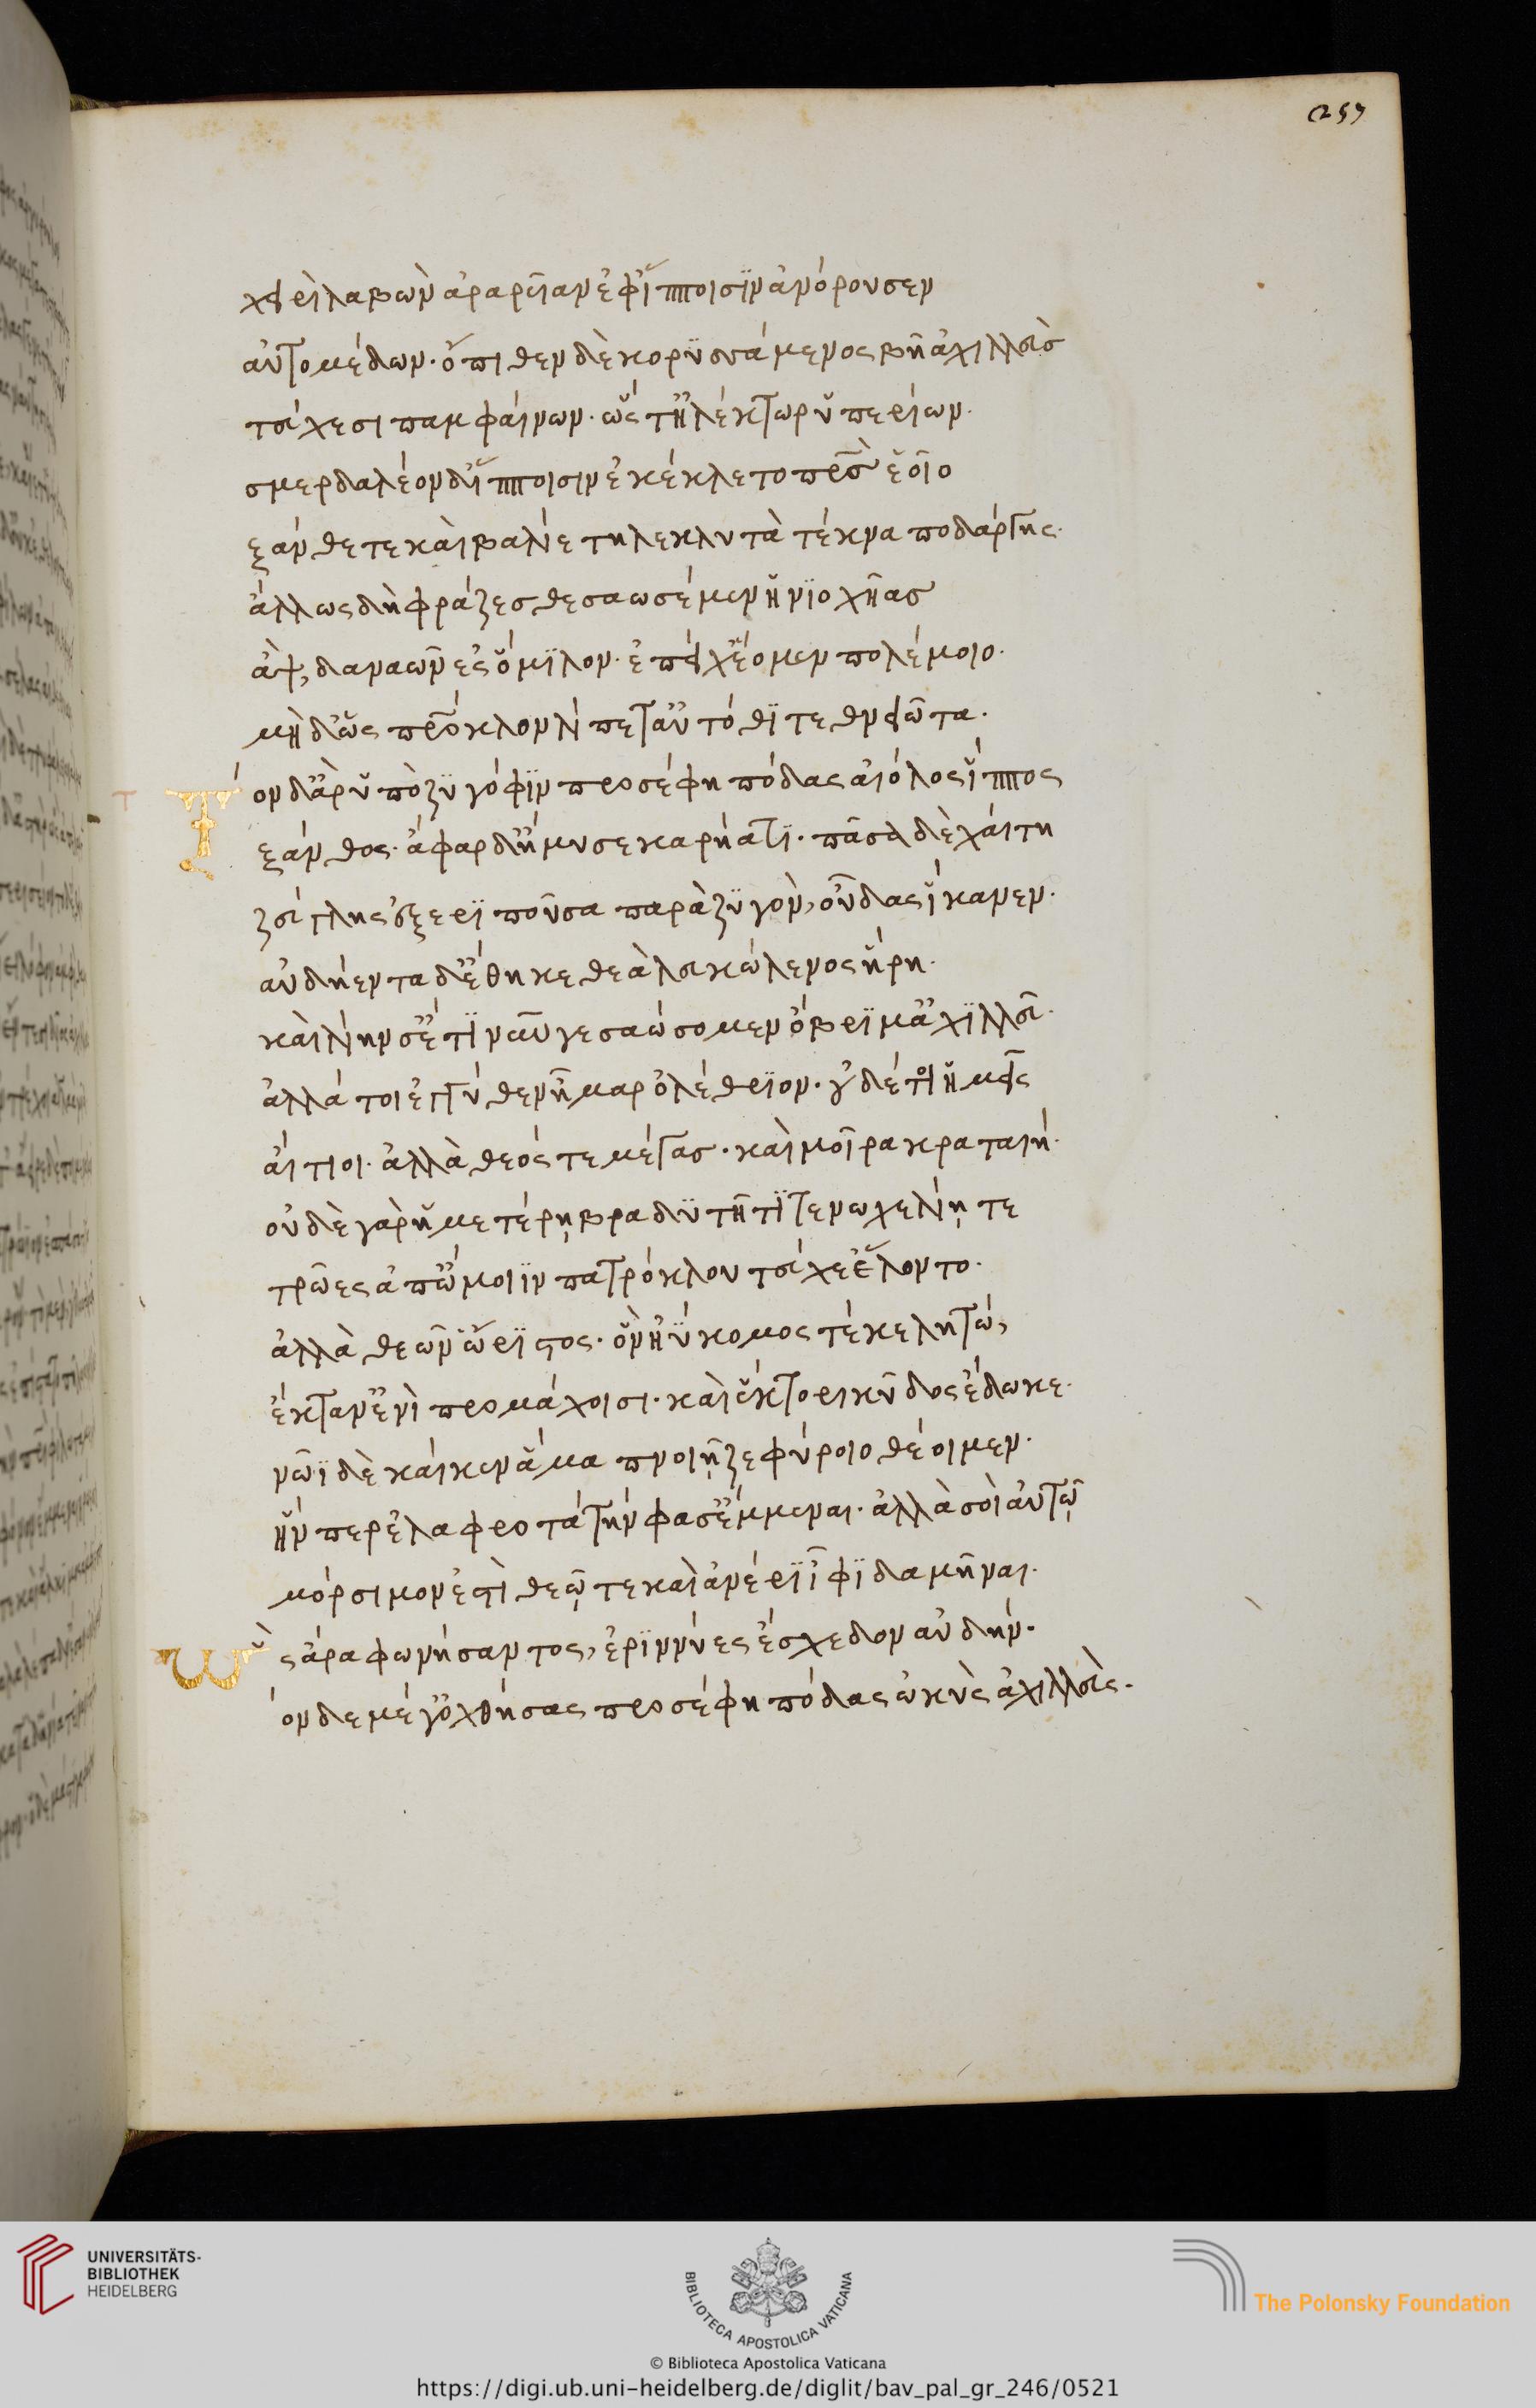 257
χειρὶ λαβὼν ἀραρυῖαν ἐφ' ἵπποιϊν ἀνόρουσεν
αὐτομέδων· ὄπιθεν δὲ κορυσσάμενος βῆ ἀχιλλεὺς
τεύχεσι παμφαίνων· ὥς τ' ἠλέκτωρ ὑπερίων·
σμερδαλέον δ' ἵπποισιν ἐκέκλετο πατρὸς ἑοῖο
ξάνθέ τε καὶ βαλίε τηλεκλυτὰ τέκνα ποδάργης·
ἄλλως δὴ φράζεσθε σαωσέμεν ἡνιοχῆας
ἂψ, δαναῶν ἐς ὅμιλον· ἐπεί χ' ἕομεν πολέμοιο·
μὴ δ' ὡς πάτροκλον λίπετ' αὐτόθι τεθνειῶτα·
Τὸν δ' ἄρ' ὑπὸ ζυγόφιν προσέφη πόδας αἰόλος ἵππος
ξάνθος· ἄφαρ δ' ἤμυσε καρήατι· πᾶσα δὲ χαίτη
ζεύγλης ἐξεριποῦσα παρὰ ζυγὸν, οὖδας ἵκανεν·
αὐδήεντα δ' ἔθηκε θεὰ λευκώλενος ἥρη·
καὶ λίην σ' ἔτι νῦν γε σαώσομεν ὄβριμ' ἀχιλλεῦ·
ἀλλά τοι ἐγγύθεν ἦμαρ ὀλέθριον· οὐδέ τοι ἡμεῖς
αἴτιοι· ἀλλὰ θεός τε μέγας· καὶ μοῖρα κραταιή·
οὐδὲ γὰρ ἡμετέρῃ βραδυτῆτί τε νωχελίῃ τε
τρῶες ἀπ' ὤμοιϊν πατρόκλου τεύχε' ἕλοντο·
ἀλλὰ θεῶν ὤριστος· ὃν ἠΰκομος τέκε λητώ,
ἔκταν' ἐνὶ προμάχοισι· καὶ ἕκτορι κῦδος ἔδωκε·
νῶϊ δὲ καί κεν ἅμα πνοιῇ ζεφύροιο θέοιμεν·
ἥν περ ἐλαφροτάτην φάσ' ἔμμεναι· ἀλλὰ σοὶ αὐτῷ
μόρσιμον ἐστὶ θεῷ τε καὶ ἀνέρι ἶφι δαμῆναι·
Ὣς ἄρα φωνήσαντος, ἐριννύες ἔσχεδον αὐδήν·
όν δε μέγ' ὀχθήσας προσέφη πόδας ὠκὺς ἀχιλλεὺς·
UNIVERSITÄTS-
BIBLIOTHEK
HEIDELBERG
BIBLIOTECA APOSTOLICA VATICANA
The Polonsky Foundation
© Biblioteca Apostolica Vaticana
https://digi.ub.uni-heidelberg.de/diglit/bav_pal_gr_246/0521